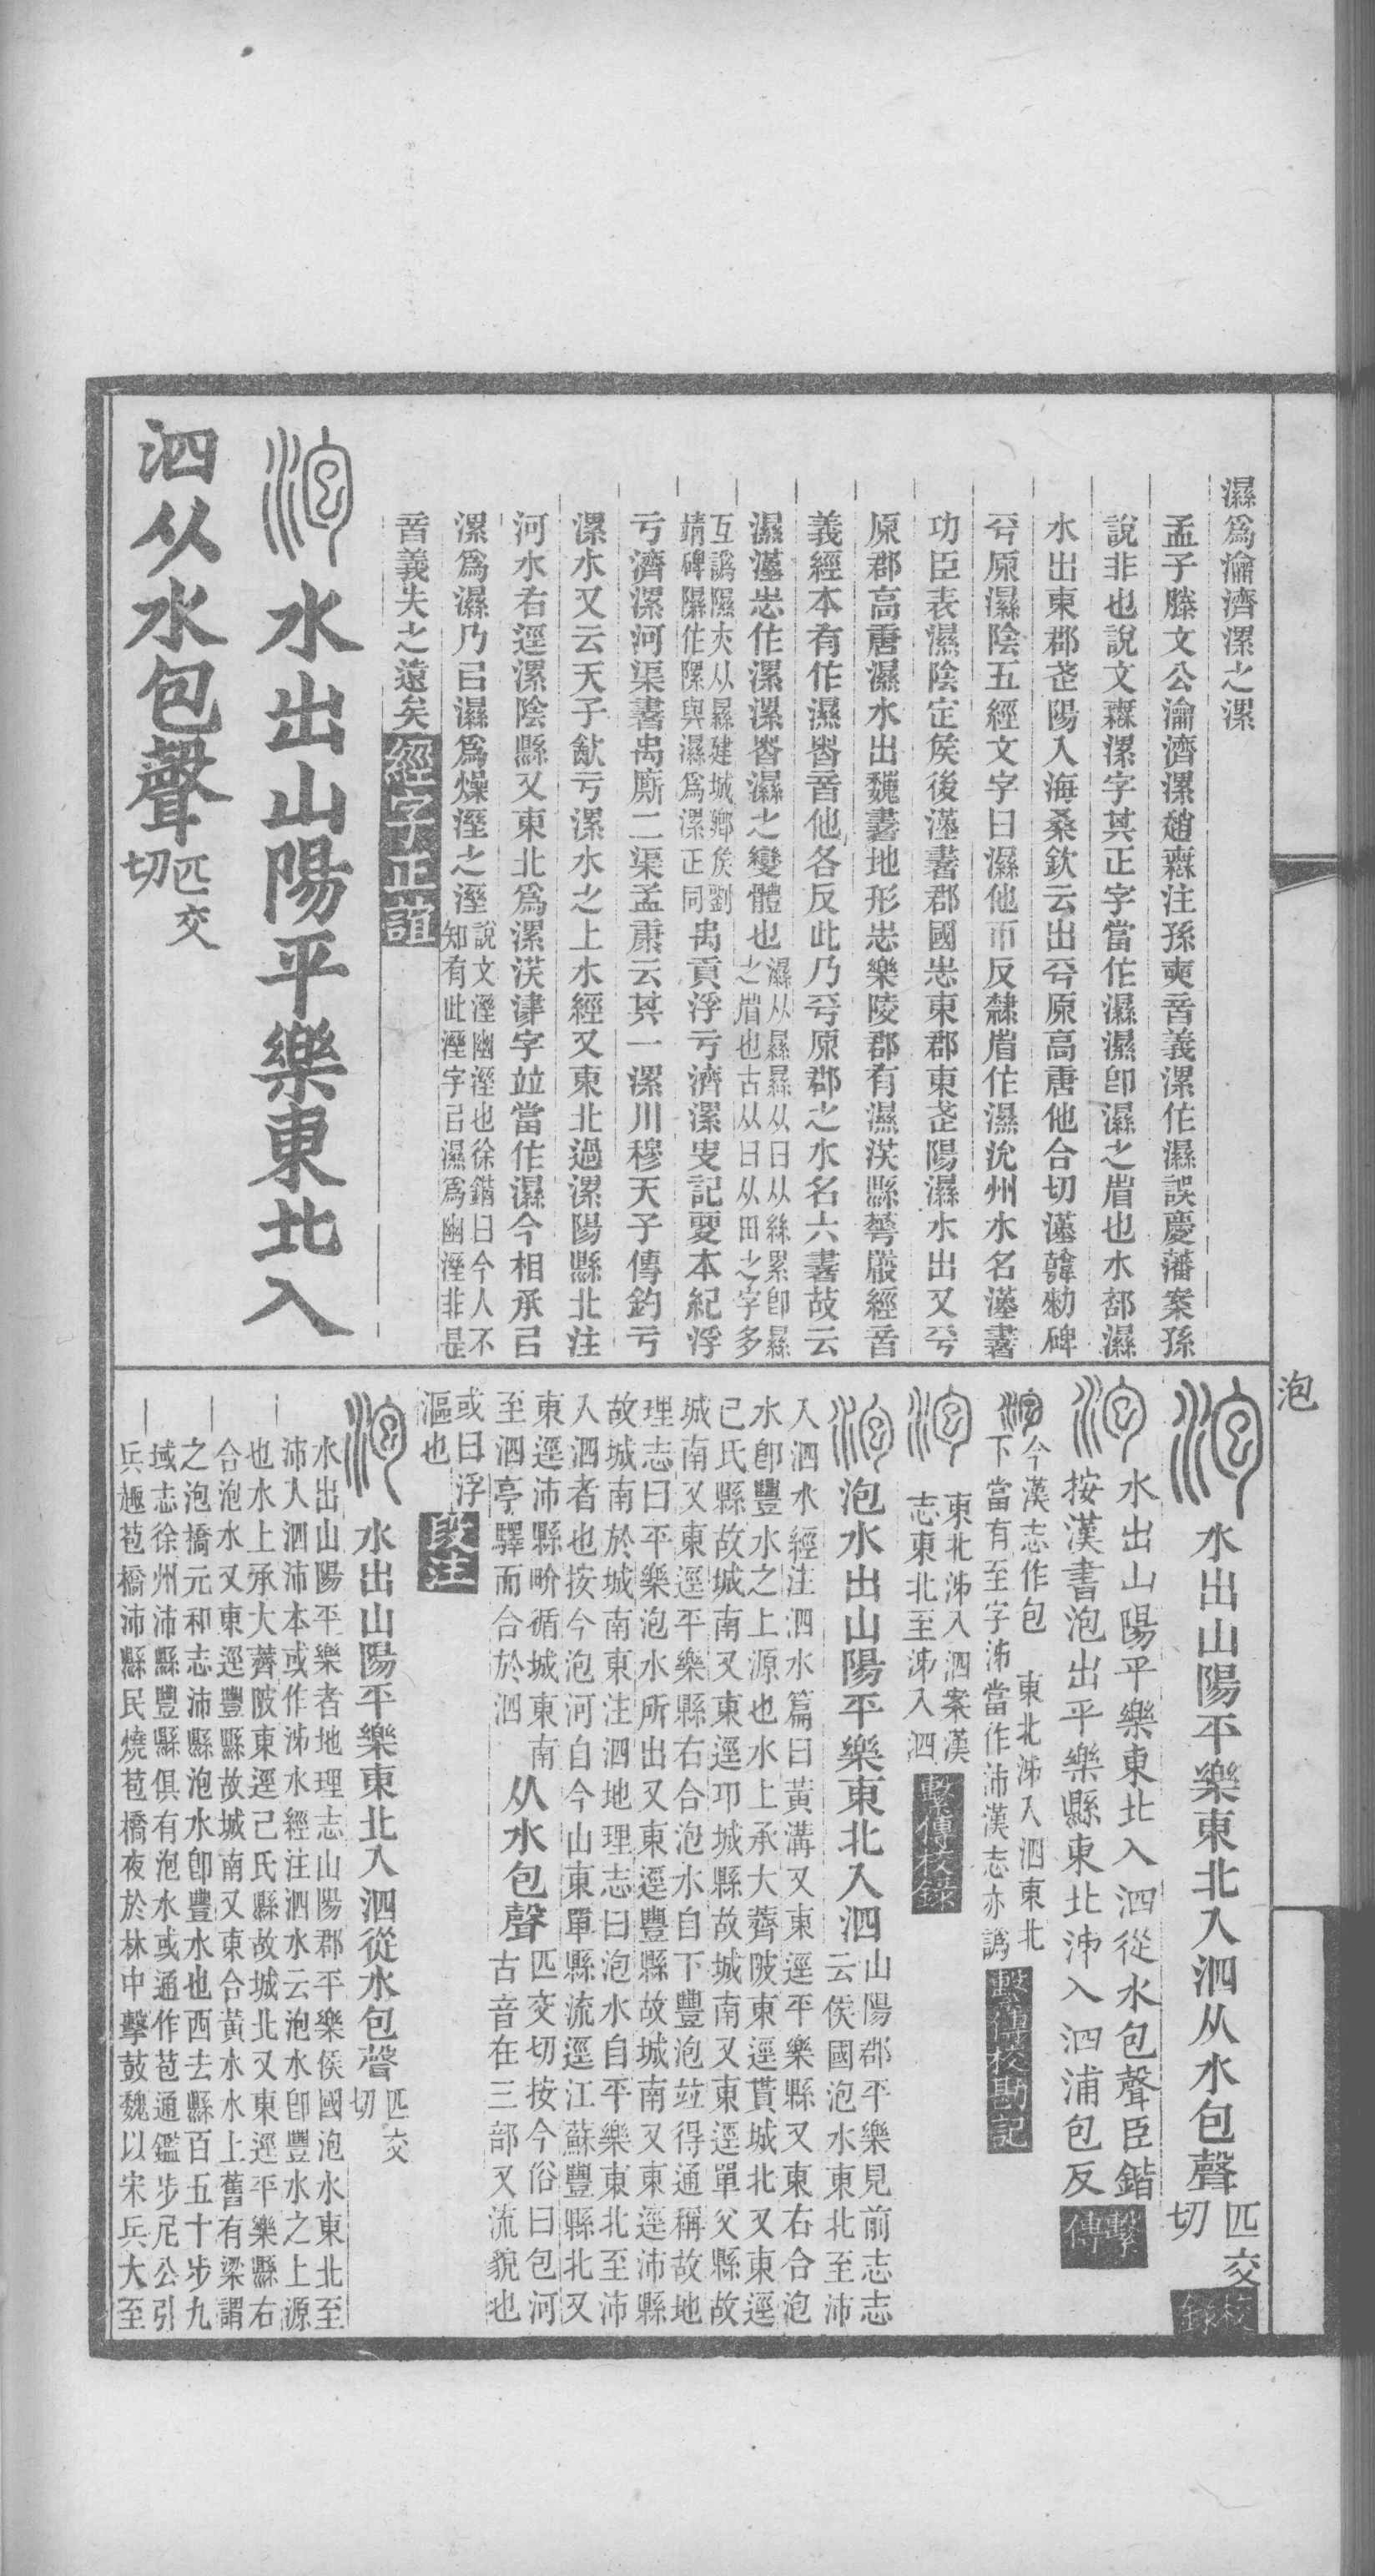 濕爲瀹濟漯之漯
孟子滕文公瀹濟漯趙注孫奭音義漯作濕誤慶藩案孫
說非也說文無漯字其正字當作濕濕卽濕之省也水部濕
水出東郡東武陽入海桑欽云出平原高唐他合切漢韓勑碑
平原濕陰五經文字曰濕他帀反隸省作濕沇州水名漢書
功臣表濕陰定侯後漢書郡國志東郡東武陽濕水出又平
原郡高唐濕水出魏書地形志樂陵郡有濕沃縣華嚴經音
義經本有作濕皆音他各反此乃平原郡之水名六書故云
濕漢志作漯漯皆濕之變體也
濕从㬎㬎从日从絲累卽㬎
之省也古从日从田之字多
互譌隰夾从㬎建城鄉侯劉
靖碑隰作隰與濕爲漯正同
禹貢浮亏濟漯史記夏本紀浮
亏濟漯河渠書禹廝二渠孟康云其一漯川穆天子傳釣亏
漯水又云天子飲亏漯水之上水經又東北過漯陽縣北注
河水右逕漯陰縣又東北爲漯沃津字竝當作濕今相承㠯
漯爲濕乃㠯濕爲燥溼之溼
說文溼幽溼也徐鍇曰今人不
知有此溼字㠯濕爲幽溼非是
音義失之遠矣 經字正誼
水出山陽平樂東北入
泗从水包聲 匹交切
水出山陽平樂東北入泗从水包聲 匹交切 校錄
水出山陽平樂東北入泗從水包聲臣鍇
按漢書泡出平樂縣東北泲入泗浦包反 繫傳
今漢志作包 東北泲入泗東北
下當有至字泲當作沛漢志亦譌 繫傳校勘記
東北泲入泗案漢
志東北至泲入泗 繫傳校錄
泡水出山陽平樂東北入泗
山陽郡平樂見前志志
云侯國泡水東北至沛
入泗水經注泗水篇曰黃溝又東逕平樂縣又東右合泡
水卽豐水之上源也水上承大薺陂東逕貰城北又東逕
已氏縣故城南又東逕邛城縣故城南又東逕單父縣故
城南又東逕平樂縣右合泡水自下豐泡竝得通稱故地
理志曰平樂泡水所出又東逕豐縣故城南又東逕沛縣
故城南於城南東注泗地理志曰泡水自平樂東北至沛
入泗者也按今泡河自今山東單縣流逕江蘇豐縣北又
東逕沛縣畍循城東南
至泗亭驛而合於泗
从水包聲
匹交切按今俗曰包河
古音在三部又流貌也
或曰浮
漚也 段注
水出山陽平樂東北入泗從水包聲 匹交切
水出山陽平樂者地理志山陽郡平樂侯國泡水東北至
沛入泗沛本或作泲水經注泗水云泡水卽豐水之上源
也水上承大薺陂東逕己氏縣故城北又東逕平樂縣右
合泡水又東逕豐縣故城南又東合黃水水上舊有梁謂
之泡橋元和志沛縣泡水卽豐水也西去縣百五十步九
域志徐州沛縣豐縣俱有泡水或通作苞通鑑步尼公引
兵趣苞橋沛縣民燒苞橋夜於林中擊鼓魏以宋兵大至
泡